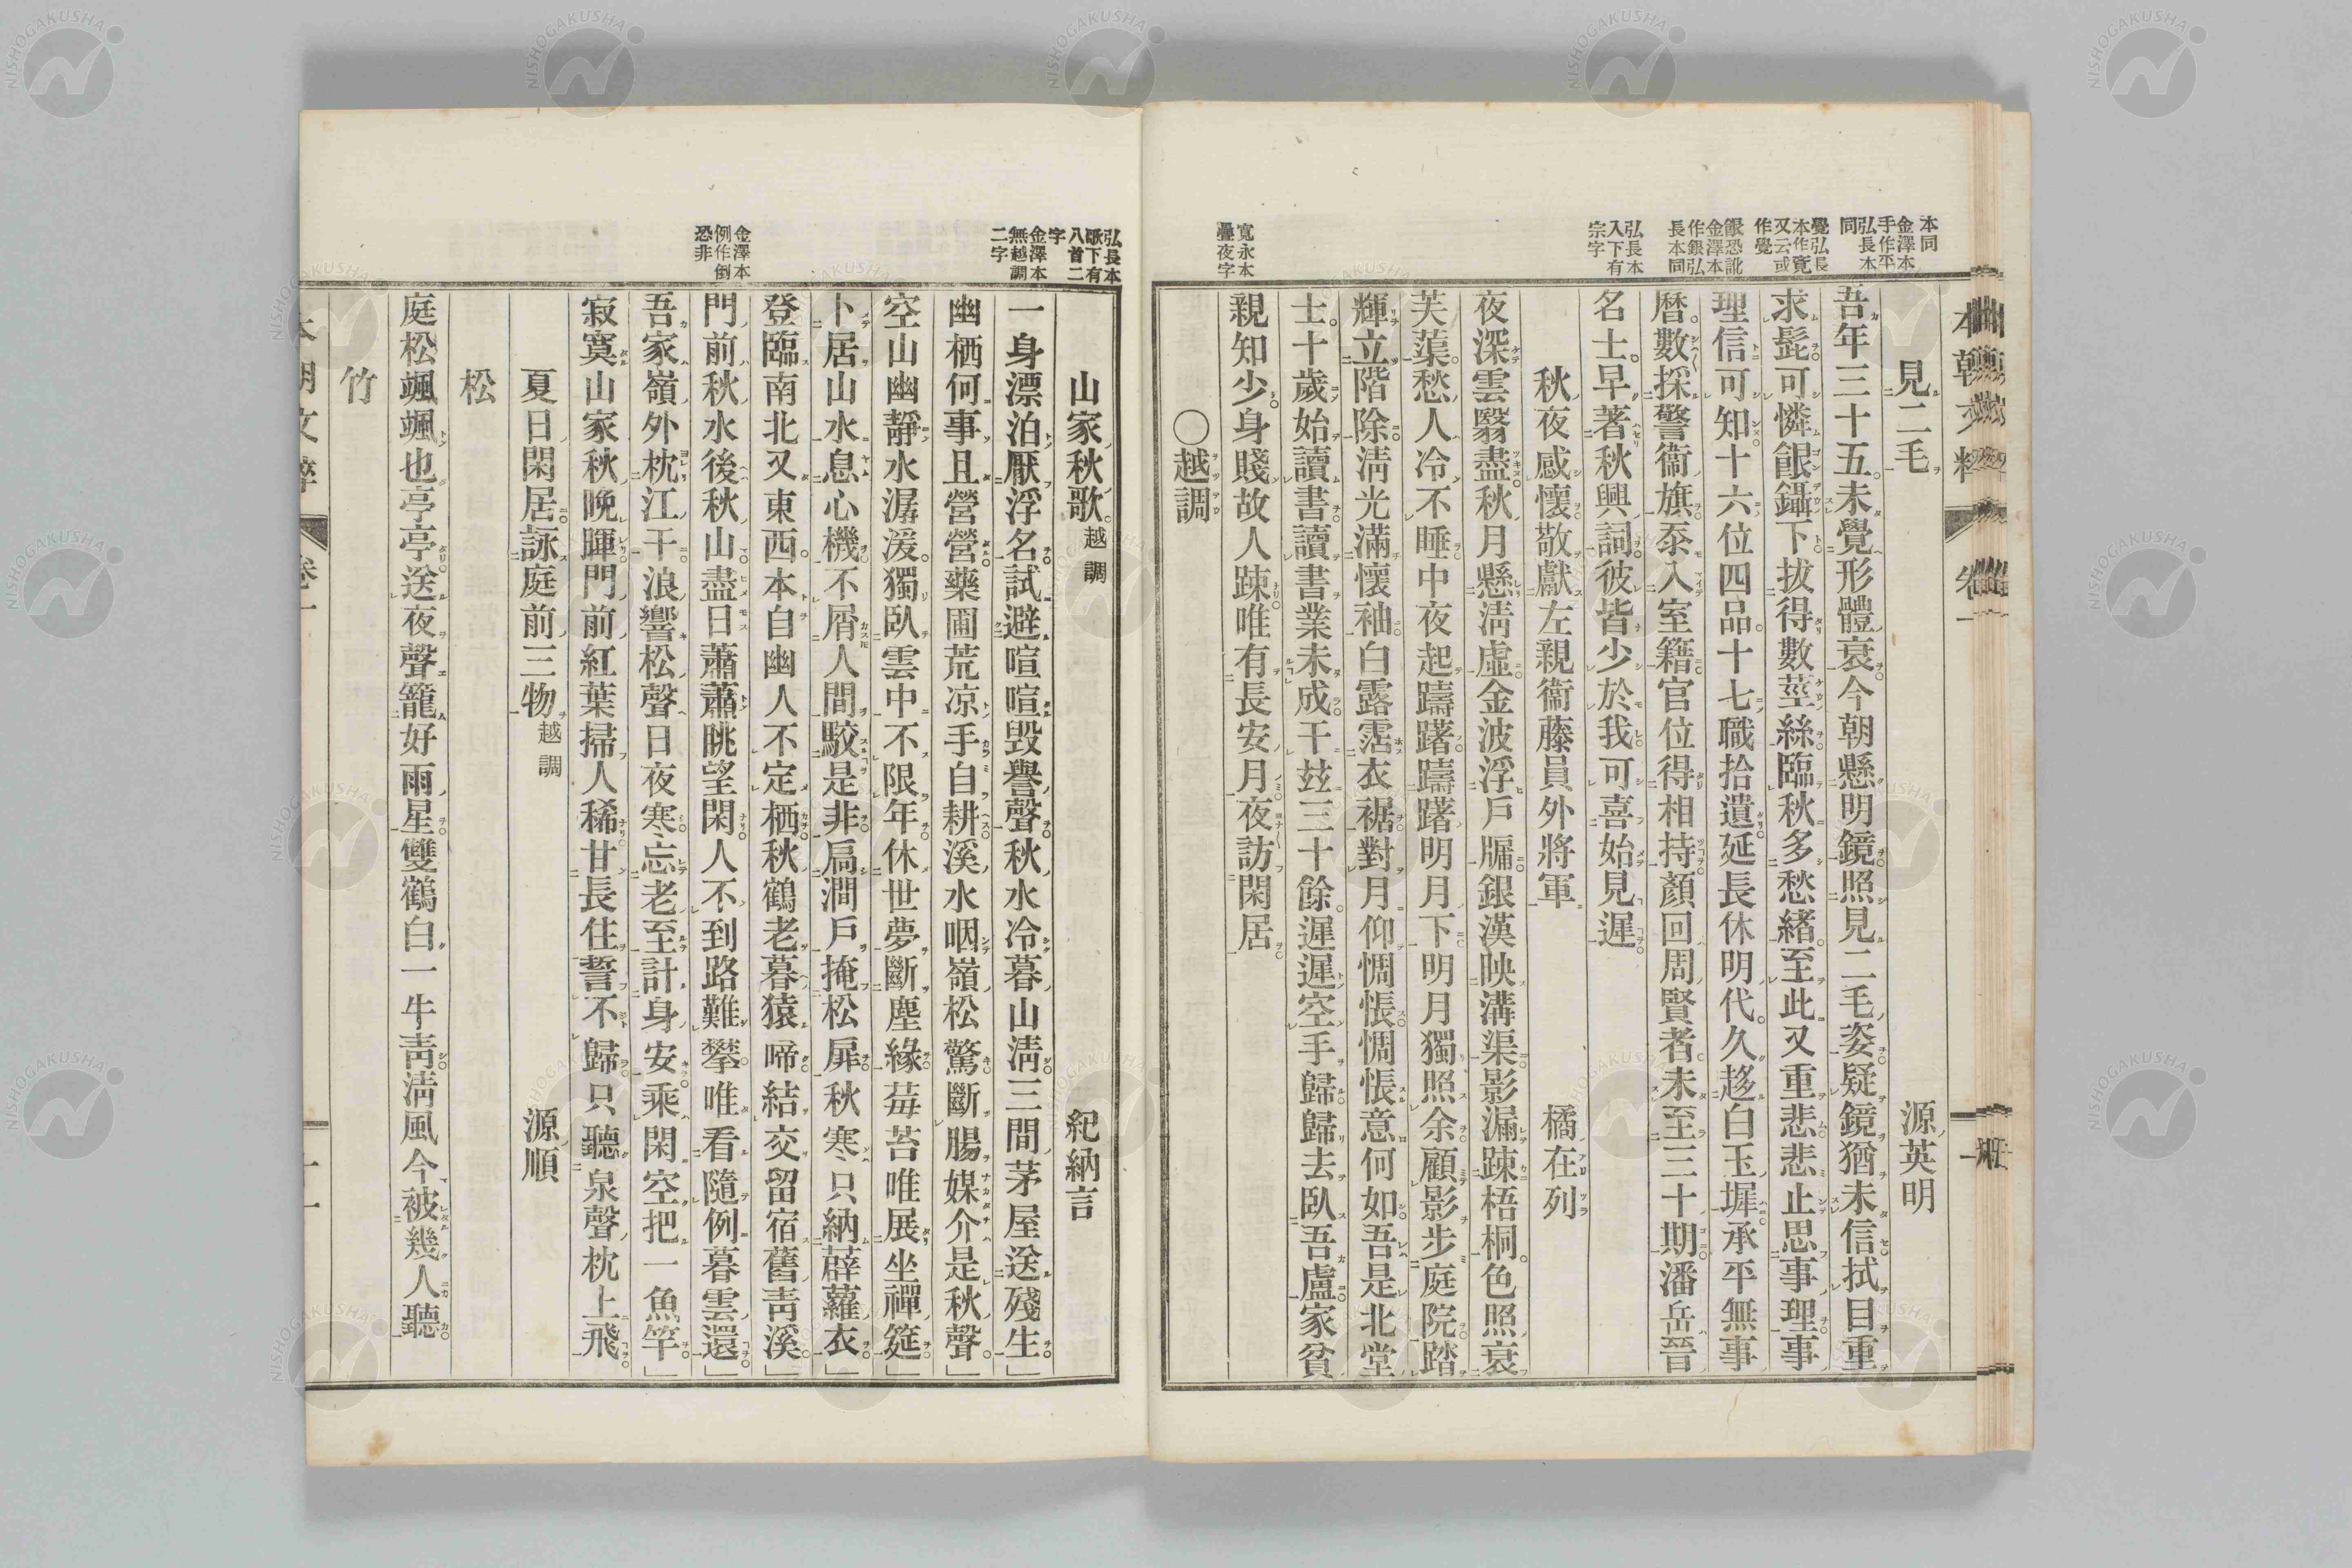 本同
金澤本
手作平
弘長本
同
覺弘長
本作寬
又云或
作覺
餛恐訛
金澤本
作銀弘
長本同
弘長本
入下有
宗字
寬永本
疊夜字
見二毛 源英明
吾年三十五未覺形體衰今朝懸明鏡照見二毛姿疑鏡猶未信拭目重
求髭可憐銀鑷下拔得數莖絲臨秋多愁緒至此又重悲悲止思事理事
理信可知十六位四品十七職拾遺延長休明代久趍白玉墀承平無事
曆數採警衞旗忝入室籍官位得相持顏回周賢者未至三十期潘岳晉
名士早著秋興詞彼皆少於我可喜始見遲
秋夜感懷敬獻左親衞藤員外將軍 橘在列
夜深雲翳盡秋月懸淸虛金波浮戶牖銀漢映溝渠影漏踈梧桐色照衰
芙蕖愁人冷不睡中夜起躊躇躊躇明月下明月獨照余顧影步庭院踏
輝立階除淸光滿懷袖白露霑衣裾對月仰惆悵惆悵意何如吾是北堂
士十歲始讀書讀書業未成干玆三十餘遲遲空手歸歸去臥吾廬家貧
親知少身賤故人踈唯有長安月夜訪閑居
○越調
弘長本
歌下有
八首二
字
金澤本
無越調
二字
金澤本
例作倒
恐非
山家秋歌 越調 紀納言
一身漂泊厭浮名試避喧喧毀譽聲秋水冷暮山淸三間茅屋送殘生」
幽栖何事且營營藥圃荒凉手自耕溪水咽嶺松驚斷腸媒介是秋聲」
空山幽靜水潺湲獨臥雲中不限年休世夢斷塵緣莓苔唯展坐禪筵」
卜居山水息心機不屑人間駮是非扃澗戶掩松扉秋寒只納薜蘿衣」
登臨南北又東西本自幽人不定栖秋鶴老暮猿啼結交留宿舊靑溪」
門前秋水後秋山盡日蕭蕭眺望閑人不到路難攀唯看隨例暮雲還」
吾家嶺外枕江干浪響松聲日夜寒忘老至計身安乘閑空把一魚竿」
寂寞山家秋晚暉門前紅葉掃人稀甘長住誓不歸只聽泉聲枕上飛
夏日閑居詠庭前三物 越調 源順
松
庭松颯颯也亭亭送夜聲籠好雨星雙鶴白一牛靑淸風今被幾人聽
竹